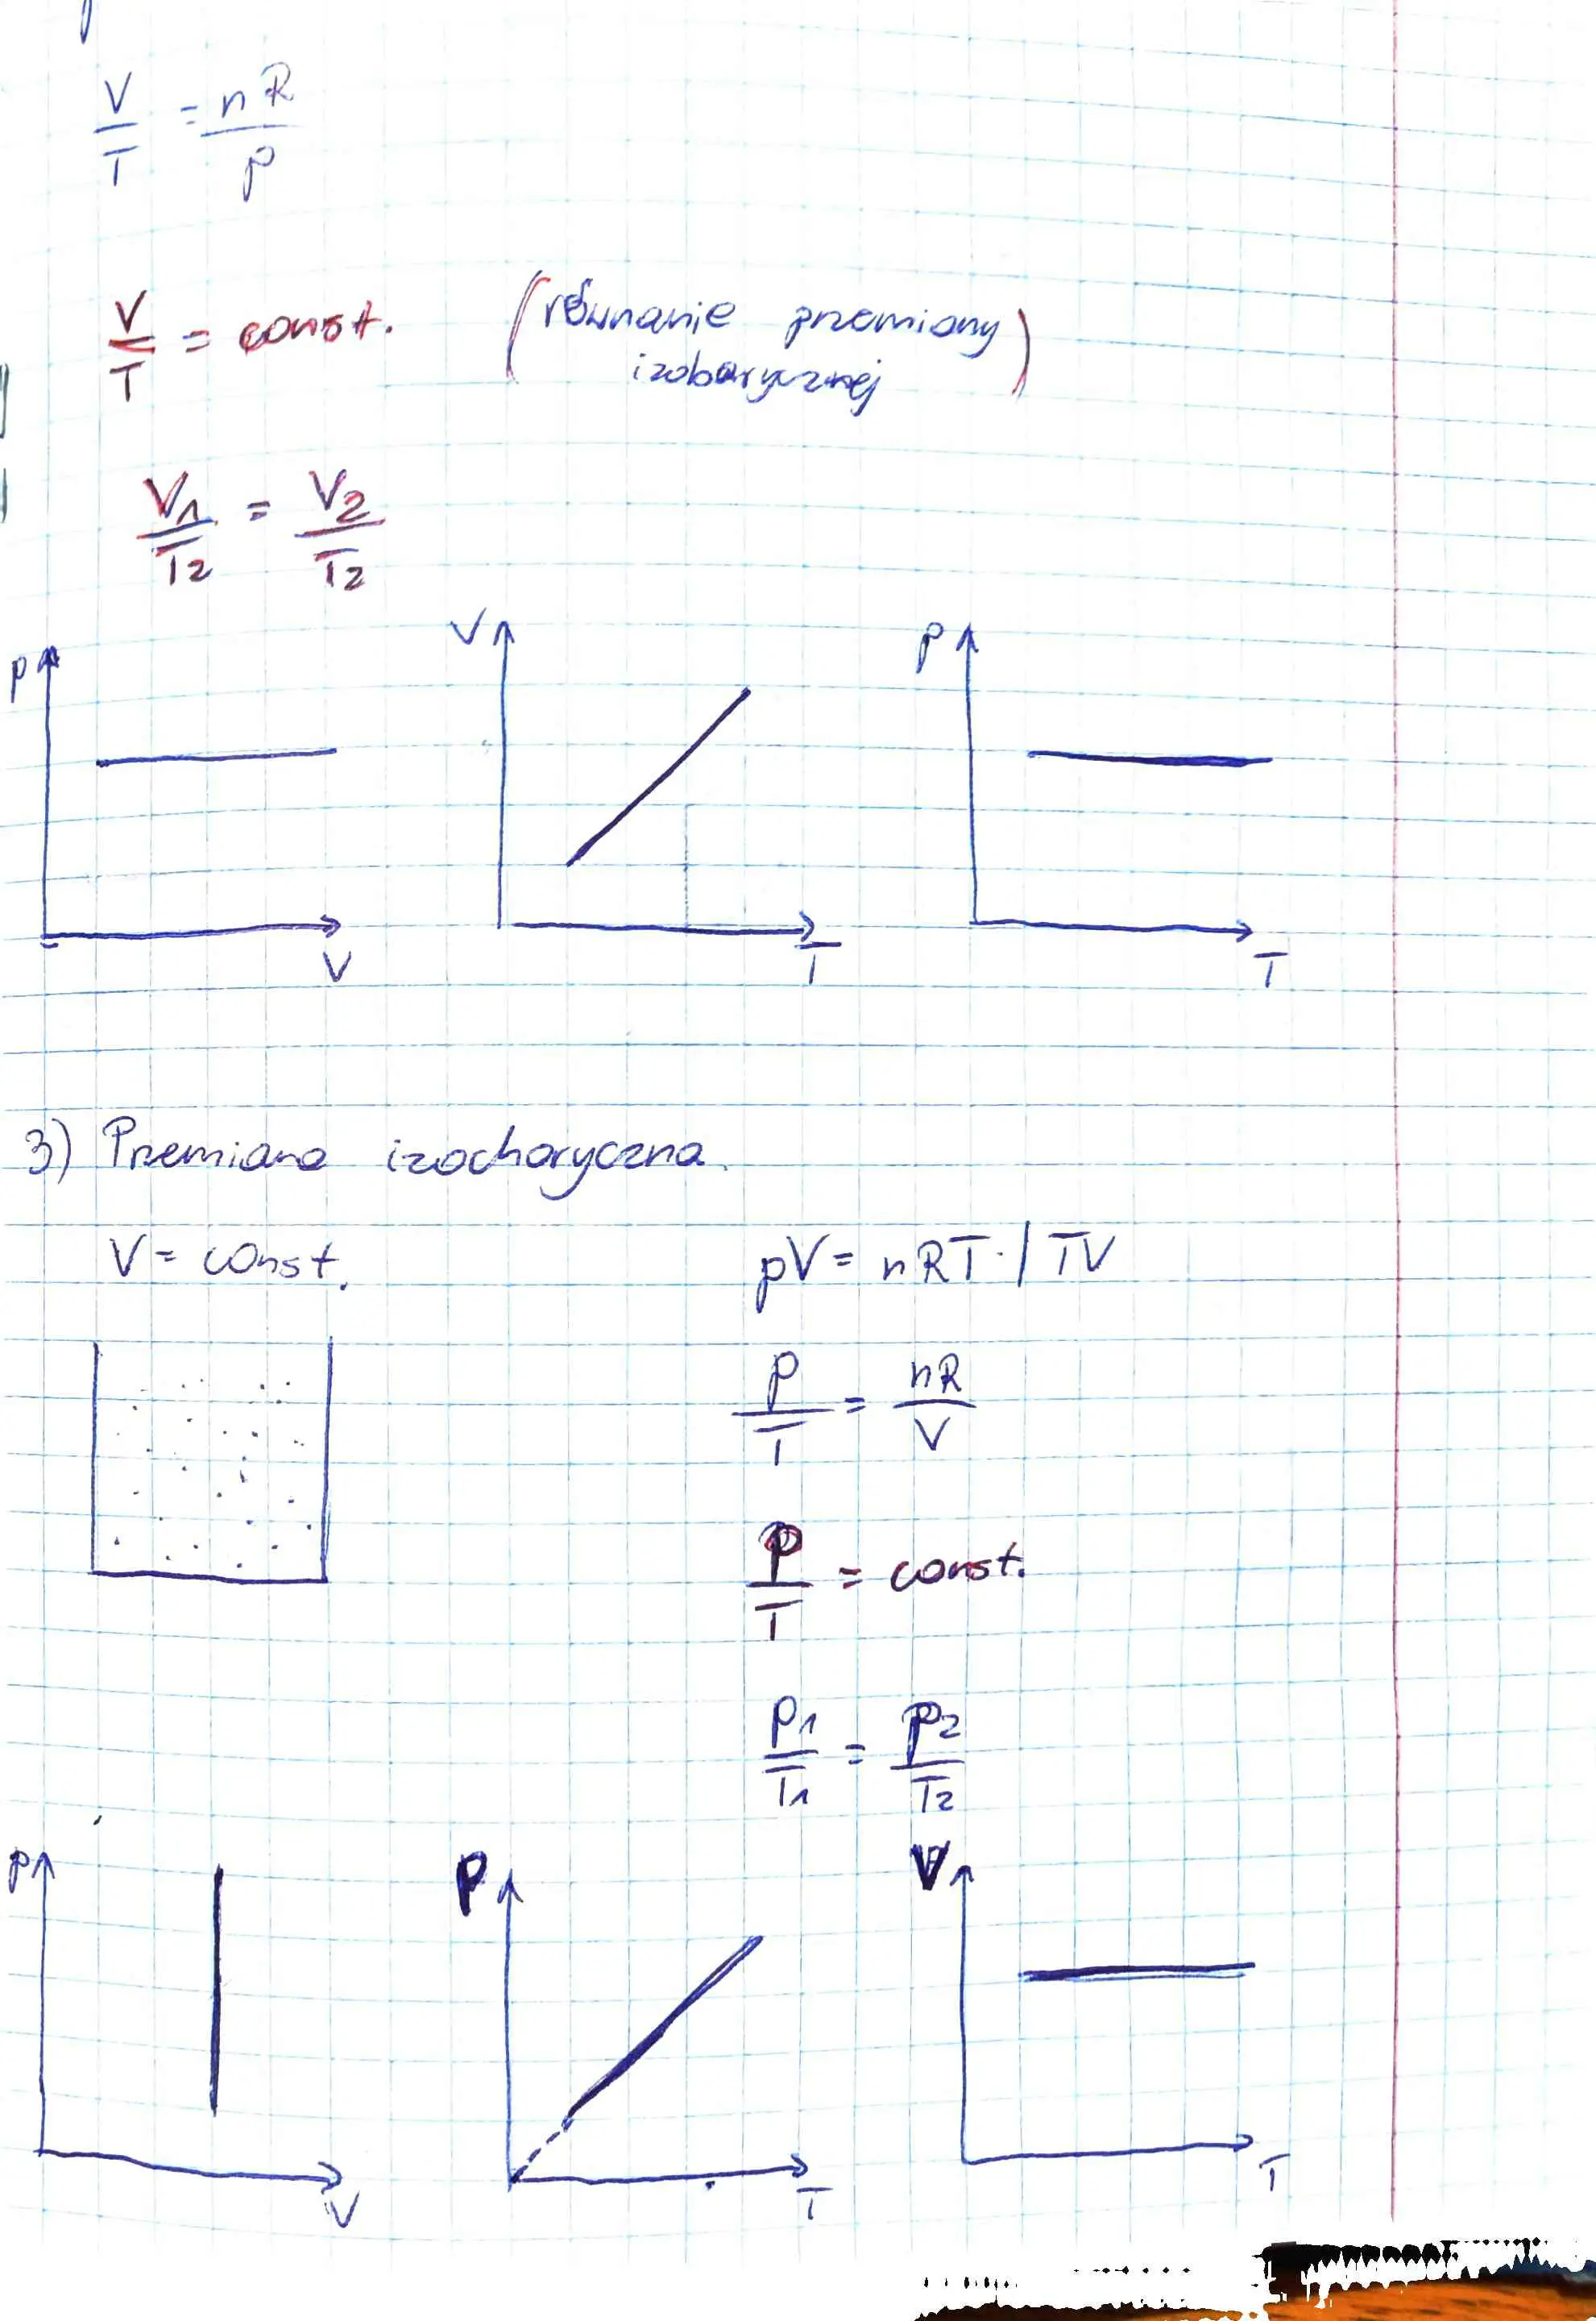 V/T = nR/p
V/T = const. (równanie przemiany
izobarycznej)
V1/T2 = V2/T2
p V
V T
p T
3) Przemiana izochoryczna.
V = const.
pV = nRT · / TV
p/T = nR/V
p/T = const.
p1/T1 = p2/T2
p V
p T
V T